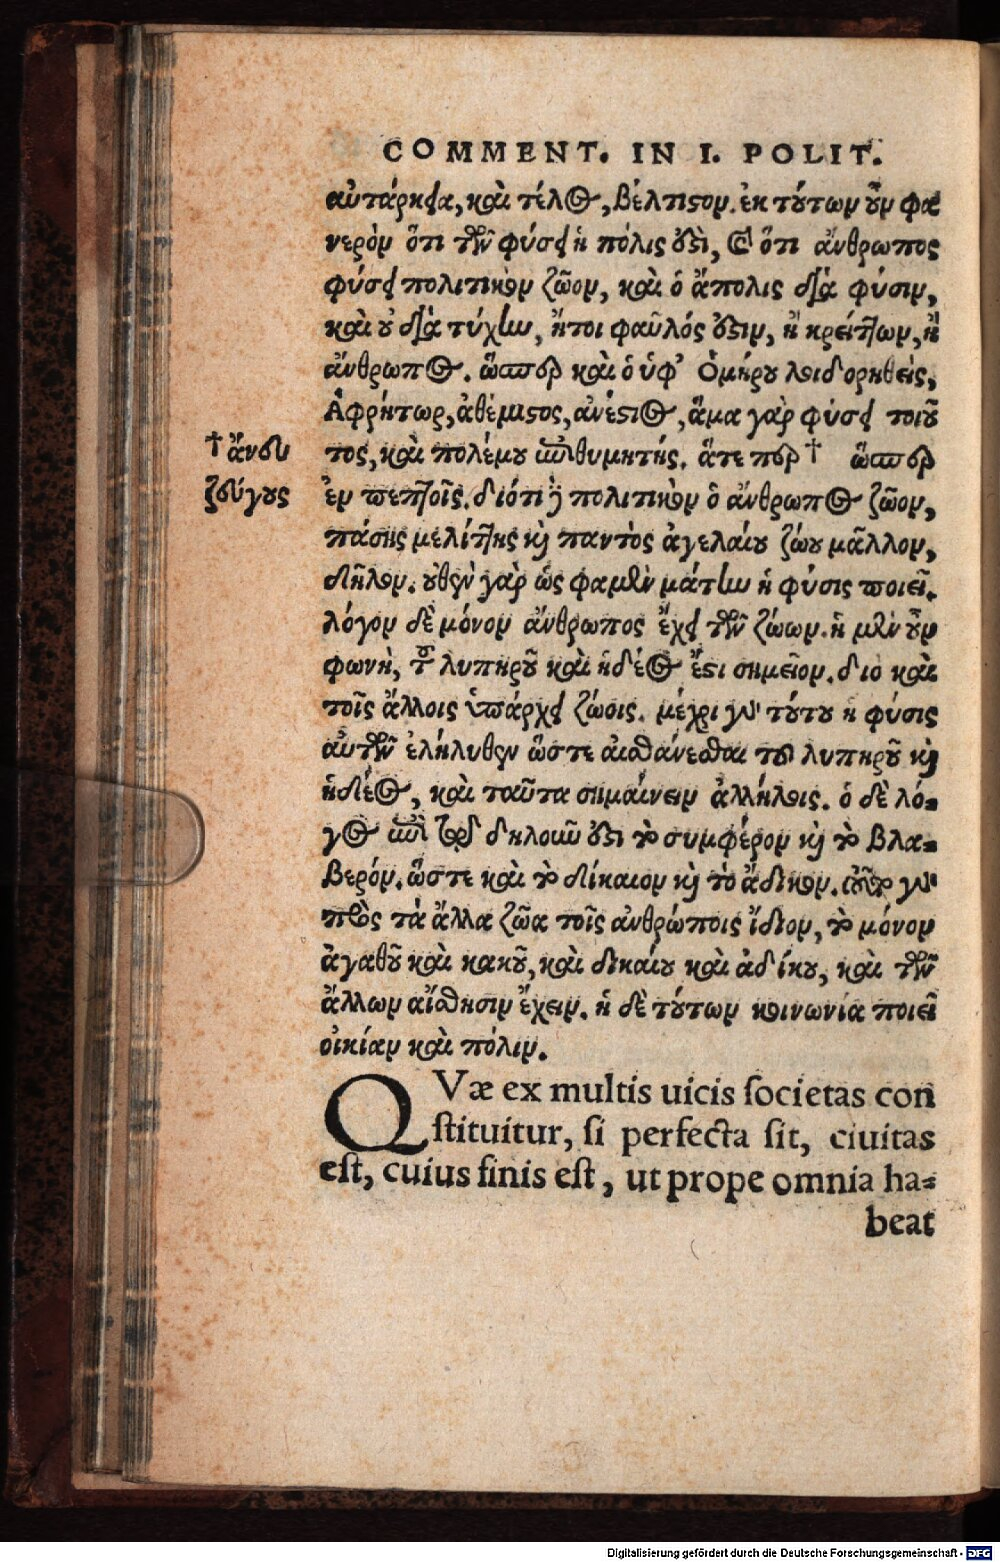 COMMENT. IN I. POLIT.
αὐτάρκεια, καὶ τέλος, βέλτιστον. ἐκ τούτων οὖν φα
νερὸν ὅτι τῶν φύσει ἡ πόλις ἐστὶ, καὶ ὅτι ἄνθρωπος
φύσει πολιτικὸν ζῶον, καὶ ὁ ἄπολις διὰ φύσιν,
καὶ οὐ διὰ τύχην, ἤτοι φαῦλός ἐστιν, ἢ κρείττων, ἢ
ἄνθρωπος. ὥσπερ καὶ ὁ ὑφ' Ὁμήρου λοιδορηθεὶς,
Ἀφρήτωρ, ἀθέμιστος, ἀνέστιος, ἅμα γὰρ φύσει τοιοῦ
τος, καὶ πολέμου ἐπιθυμητής. ἅτε περ † ὥσπερ
† ἄνευ
ζεύγους
ἐν πεττοῖς. διότι δὲ πολιτικὸν ὁ ἄνθρωπος ζῶον,
πάσης μελίττης καὶ παντὸς ἀγελαίου ζώου μᾶλλον,
δῆλον. οὐθὲν γὰρ ὡς φαμὲν μάτην ἡ φύσις ποιεῖ.
λόγον δὲ μόνον ἄνθρωπος ἔχει τῶν ζώων. ἡ μὲν οὖν
φωνὴ, τοῦ λυπηροῦ καὶ ἡδέος ἔστι σημεῖον. διὸ καὶ
τοῖς ἄλλοις ὑπάρχει ζώοις. μέχρι γὰρ τούτου ἡ φύσις
αὐτῶν ἐλήλυθεν ὥστε αἰσθάνεσθαι τοῦ λυπηροῦ καὶ
ἡδέος, καὶ ταῦτα σημαίνειν ἀλλήλοις. ὁ δὲ λό-
γος ἐπὶ τῷ δηλοῦν ἐστι τὸ συμφέρον καὶ τὸ βλα-
βερόν. ὥστε καὶ τὸ δίκαιον καὶ τὸ ἄδικον. τοῦτο γὰρ
πρὸς τὰ ἄλλα ζῶα τοῖς ἀνθρώποις ἴδιον, τὸ μόνον
ἀγαθοῦ καὶ κακοῦ, καὶ δικαίου καὶ ἀδίκου, καὶ τῶν
ἄλλων αἴσθησιν ἔχειν. ἡ δὲ τούτων κοινωνία ποιεῖ
οἰκίαν καὶ πόλιν.
QVæ ex multis uicis societas con
stituitur, si perfecta sit, ciuitas
est, cuius finis est, ut prope omnia ha-
beat
Digitalisierung gefördert durch die Deutsche Forschungsgemeinschaft - DFG